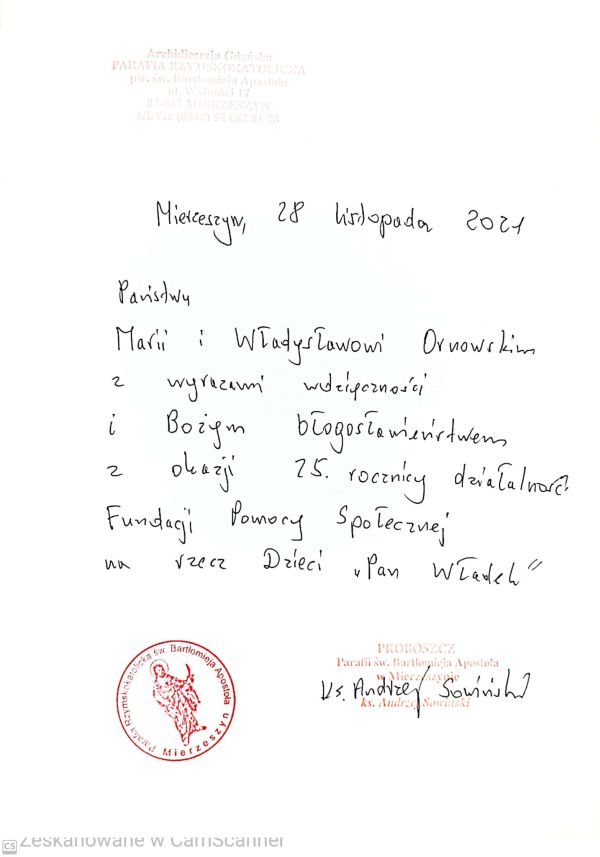 Archidiecezja Gdańska
PARAFIA RZYMSKOKATOLICKA
pw. św. Bartłomieja Apostoła
ul. Wolności 17
83-041 MIERZESZYN
tel. fax (0048) 58 682 81 73
Mierzeszyn, 28 listopada 2021
Państwu
Marii i Władysławowi Ornowskim
z wyrazami wdzięczności
i Bożym błogosławieństwem
z okazji 25. rocznicy działalności
Fundacji Pomocy Społecznej
na rzecz Dzieci „Pan Władek”
Parafia Rzymskokatolicka św. Bartłomieja Apostoła
Mierzeszyn
PROBOSZCZ
Parafii św. Bartłomieja Apostoła
w Mierzeszynie
ks. Andrzej Sowiński
ks. Andrzej Sowiński
CS Zeskanowane w CamScanner